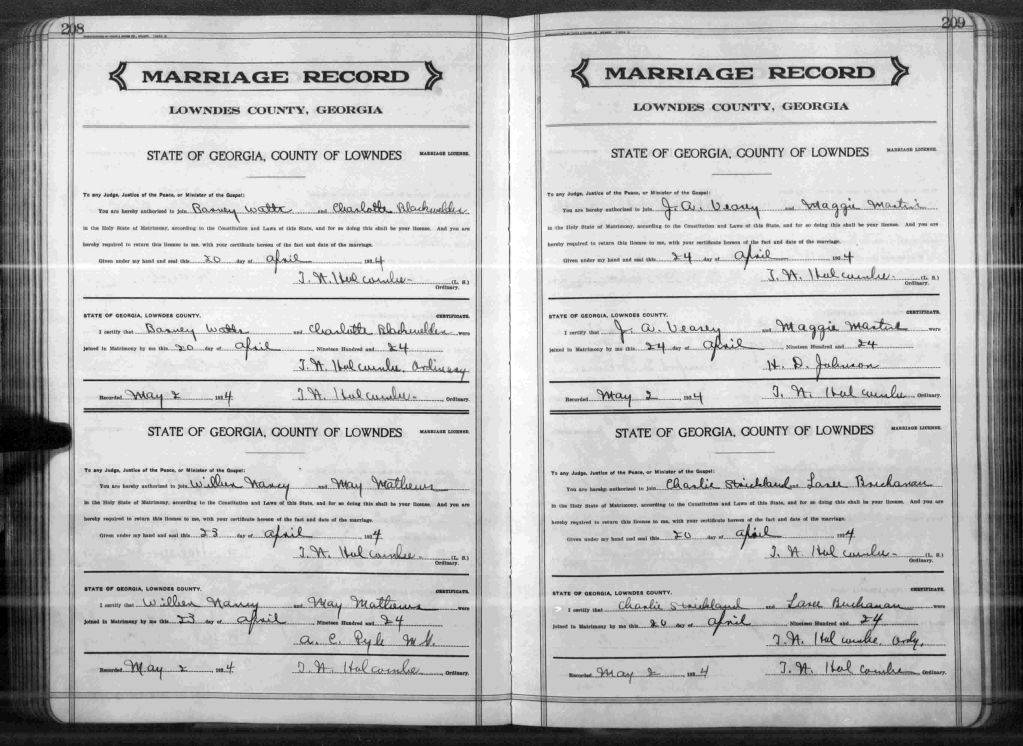 208
MARRIAGE RECORD
LOWNDES COUNTY, GEORGIA
STATE OF GEORGIA, COUNTY OF LOWNDES MARRIAGE LICENSE.
To any Judge, Justice of the Peace, or Minister of the Gospel:
You are hereby authorized to join Barney Watts and Charlotte Blackwelder
in the Holy State of Matrimony, according to the Constitution and Laws of this State, and for so doing this shall be your license. And you are
hereby required to return this license to me, with your certificate hereon of the fact and date of the marriage.
Given under my hand and seal this 20 day of April 1924
T. A. Holcombe (L. S.)
Ordinary.
STATE OF GEORGIA, LOWNDES COUNTY. CERTIFICATE.
I certify that Barney Watts and Charlotte Blackwelder were
joined in Matrimony by me this 20 day of April Nineteen Hundred and 24
T. A. Holcombe, Ordinary
Recorded May 2 1924 T. A. Holcombe Ordinary.
STATE OF GEORGIA, COUNTY OF LOWNDES MARRIAGE LICENSE.
To any Judge, Justice of the Peace, or Minister of the Gospel:
You are hereby authorized to join Willien Nancy and May Mathews
in the Holy State of Matrimony, according to the Constitution and Laws of this State, and for so doing this shall be your license. And you are
hereby required to return this license to me, with your certificate hereon of the fact and date of the marriage.
Given under my hand and seal this 23 day of April 1924
T. A. Holcombe (L. S.)
Ordinary.
STATE OF GEORGIA, LOWNDES COUNTY. CERTIFICATE.
I certify that Willien Nancy and May Mathews were
joined in Matrimony by me this 23 day of April Nineteen Hundred and 24
A. C. Pyle M.G.
Recorded May 2 1924 T. A. Holcombe Ordinary.
209
MARRIAGE RECORD
LOWNDES COUNTY, GEORGIA
STATE OF GEORGIA, COUNTY OF LOWNDES MARRIAGE LICENSE.
To any Judge, Justice of the Peace, or Minister of the Gospel:
You are hereby authorized to join J. A. Veasey and Maggie Martin
in the Holy State of Matrimony, according to the Constitution and Laws of this State, and for so doing this shall be your license. And you are
hereby required to return this license to me, with your certificate hereon of the fact and date of the marriage.
Given under my hand and seal this 24 day of April 1924
T. A. Holcombe (L. S.)
Ordinary.
STATE OF GEORGIA, LOWNDES COUNTY. CERTIFICATE.
I certify that J. A. Veasey and Maggie Martin were
joined in Matrimony by me this 24 day of April Nineteen Hundred and 24
H. D. Johnson
Recorded May 2 1924 T. A. Holcombe Ordinary.
STATE OF GEORGIA, COUNTY OF LOWNDES MARRIAGE LICENSE.
To any Judge, Justice of the Peace, or Minister of the Gospel:
You are hereby authorized to join Charlie Strickland and Laree Buchanan
in the Holy State of Matrimony, according to the Constitution and Laws of this State, and for so doing this shall be your license. And you are
hereby required to return this license to me, with your certificate hereon of the fact and date of the marriage.
Given under my hand and seal this 20 day of April 1924
T. A. Holcombe (L. S.)
Ordinary.
STATE OF GEORGIA, LOWNDES COUNTY. CERTIFICATE.
I certify that Charlie Strickland and Laree Buchanan were
joined in Matrimony by me this 20 day of April Nineteen Hundred and 24
T. A. Holcombe, Ordy,
Recorded May 2 1924 T. A. Holcombe Ordinary.